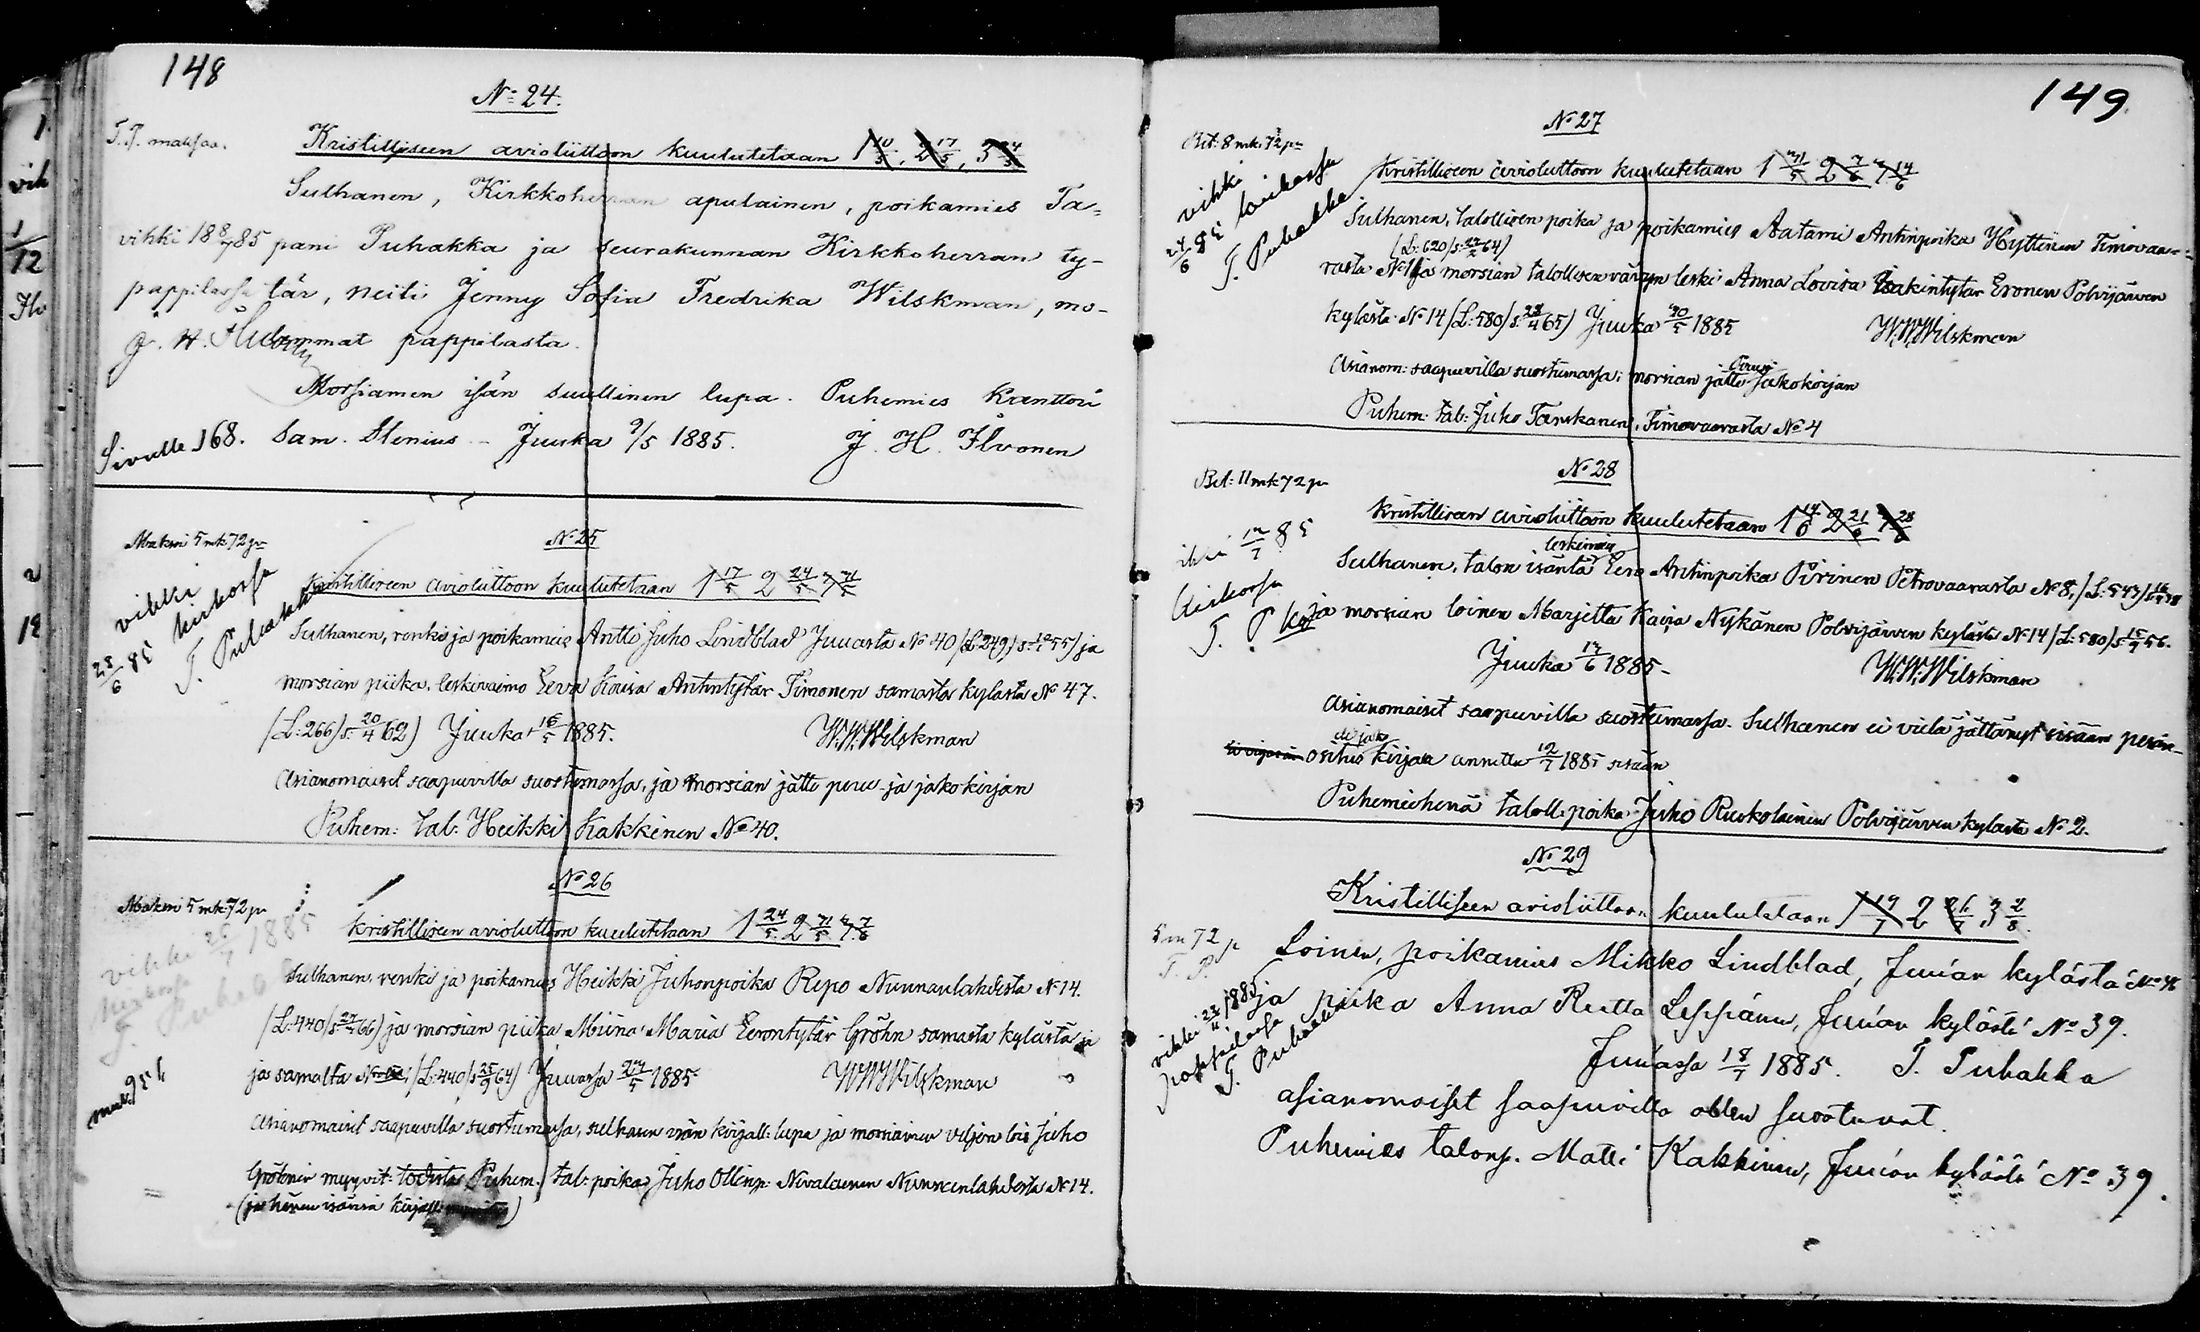 148
No 24.
T. P. maksaa.
Kristilliseen avioliittoon kuulutetaan 1 10/5, 2 17/5, 3 24/5
Sulhanen, Kirkkoherran apulainen, poikamies Ta-
vihki 18 8/7 85 pani Puhakka ja seurakunnan Kirkkoherran ty-
pappilassa tär, neiti Jenny Sofia Fredrika Wilskman, mo-
J. H. lemmat pappilasta.
Morsiamen isän suullinen lupa. Puhemies Kanttori
Sivulle 168. Sam. Stenius - Juuka 9/5 1885. J. H. Ilvonen
No 25
Maksoi 5 mk 72 p
vihki
25/6 85 kirkossa
T. Puhakka
Kristilliseen avioliittoon kuulutetaan 1 17/5 2 24/5 3 31/5
Sulhanen, renki ja poikamies Antti Juho Lindblad Juuasta No 40 (L: 249) 55) ja
morsian piika, leskivaimo Eeva Lovisa Antintytär Timonen samasta kylästä No 47.
(L: 266) s. 20/4 62) Juuka 16/5 1885. W.W. Wilskman
Asianomaiset saapuvilla suostumassa, ja morsian jätti peru- ja jakokirjan
Puhem: tal: Heikki Kakkinen No 40.
No 26
Maksoi 5 mk 72 p
vihki 25/7 1885
kirkossa
T. Puhak
Kristilliseen avioliittoon kuulutetaan 1 24/5 2 31/5 3 7/6
Sulhanen, renki ja poikamies Heikki Juhonpoika Repo Nunnanlahdesta No 14.
(L: 440/s. 66) ja morsian piika Miina Maria Eerontytär Gröhn samasta kylästä ja
ja samalta (L: 440/s 25/9 64) Juuassa 1885 W.W. Wilskman
Asianomaiset saapuvilla suostumassa, sulhasen isän kirjall: lupa ja morsiamen veljen lois Juho
Gröhnin Puhem. tal: poika Juho Ollinp: Nevalainen Nunnanlahdesta No 14.
(ja hänen isänsä kirjall:
149.
No 27
Bet: 8 mk 72 p
vihki
24/6 85 kirkossa
T. Puhakka
Kristilliseen avioliittoon kuulutetaan 1 31/5 2 7/6 3 14/6
Sulhanen, talollisen poika ja poikamies Aatami Antinpoika Hyttinen Timovaa-
(L: 620/s: 64)
rasta No 1 ja morsian talollisen vävyn leski Anna Lovisa Isakintytär Eronen Polvijärven
kylästä No 14 (L: 580/s. 28/4 65) Juuka 30/5 1885 W.W. Wilskman
Asianom: saapuvilla suostumassa; morsian jätti Peru ja jakokirjan
Puhem: tal: Juho Tanskanen, Timovaarasta No 4
No 28
Bet: 11 mk 72 p
12/7 85
Kirkossa
T. P
Kristillisen avioliittoon kuulutetaan 1 14/6 2 21/6 3 28/6
leskimies
Sulhanen, talon isäntä Eero Antinpoika Piirinen Petrovaarasta No 8, (L: 543/
ja morsian loinen Marjetta Kaisa Nykänen Polvijärven kylästä No 14 (L: 580/s. 56.
Juuka 1885 - W.W. Wilskman
Asianomaiset saapuvilla suostumassa. Sulhanen ei vielä jättänyt sisään perin-
eli jako
ositus kirjaa annettu 12/7 1885 sisään
Puhemiehenä taloll: poika Juho Ruokolainen Polvijärven kylästä No 2.
No 29
Kristilliseen avioliittoon kuulutetaan 1 19/7 2 26/7 3 2/8.
5 m 72 p
T. P.
Loinen, poikamies Mikko Lindblad, Juuan kylästä No 48
ja piika Anna Reetta Leppänen, Juuan kylästä No 39.
vihki 1885
pappilassa
T. Puhakka
Juuassa 18/7 1885. T. Puhakka
Asianomaiset saapuvilla ollen suostuvat.
Puhemies talonp. Matti Kakkinen, Juuan kylästä No 39.